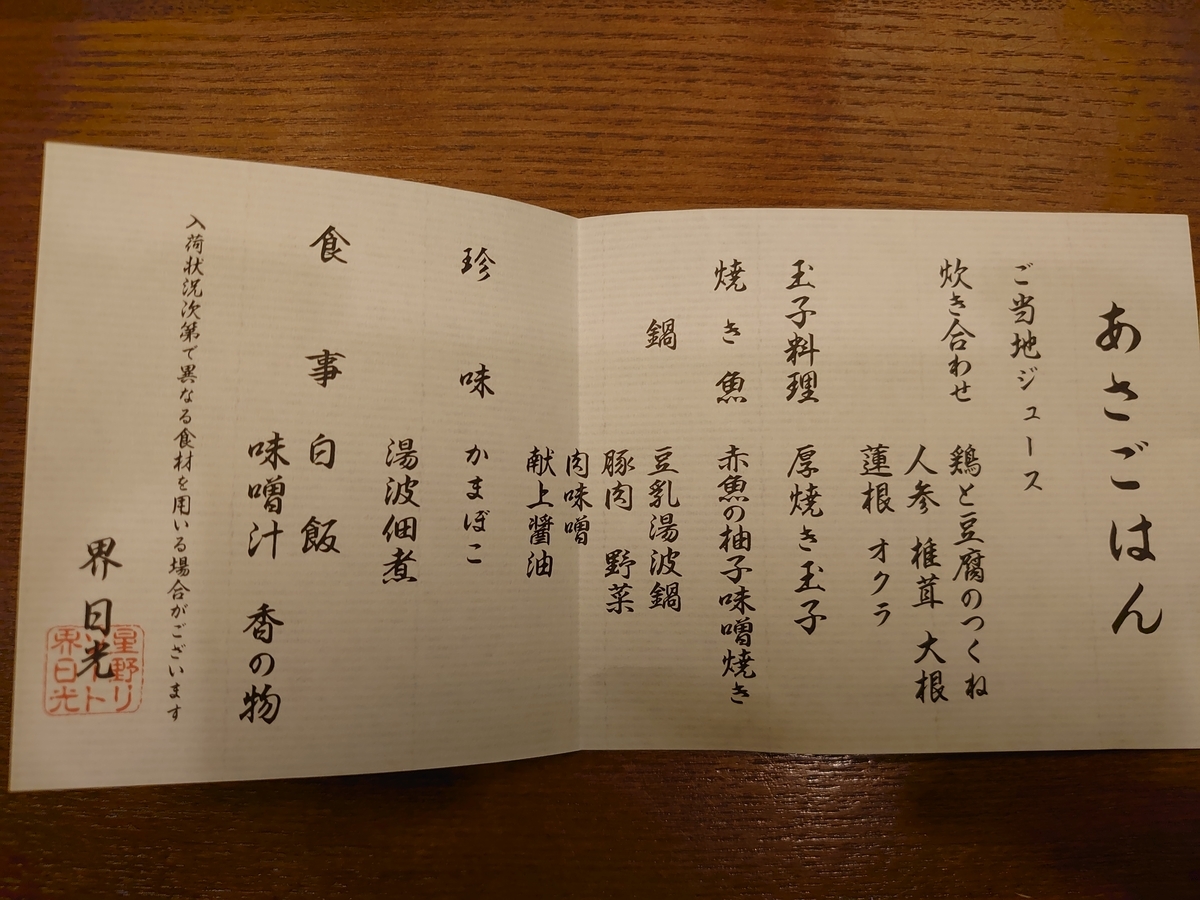 あさごはん
ご当地ジュース
炊き合わせ 鶏と豆腐のつくね
人参 椎茸 大根
蓮根 オクラ
玉子料理 厚焼き玉子
焼き魚 赤魚の柚子味噌焼き
鍋 豆乳湯波鍋
豚肉 野菜
肉味噌
献上醤油
珍味 かまぼこ
湯波佃煮
食事 白飯
味噌汁 香の物
入荷状況次第で異なる食材を用いる場合がございます
界 日光
星野リ
ート
界日光